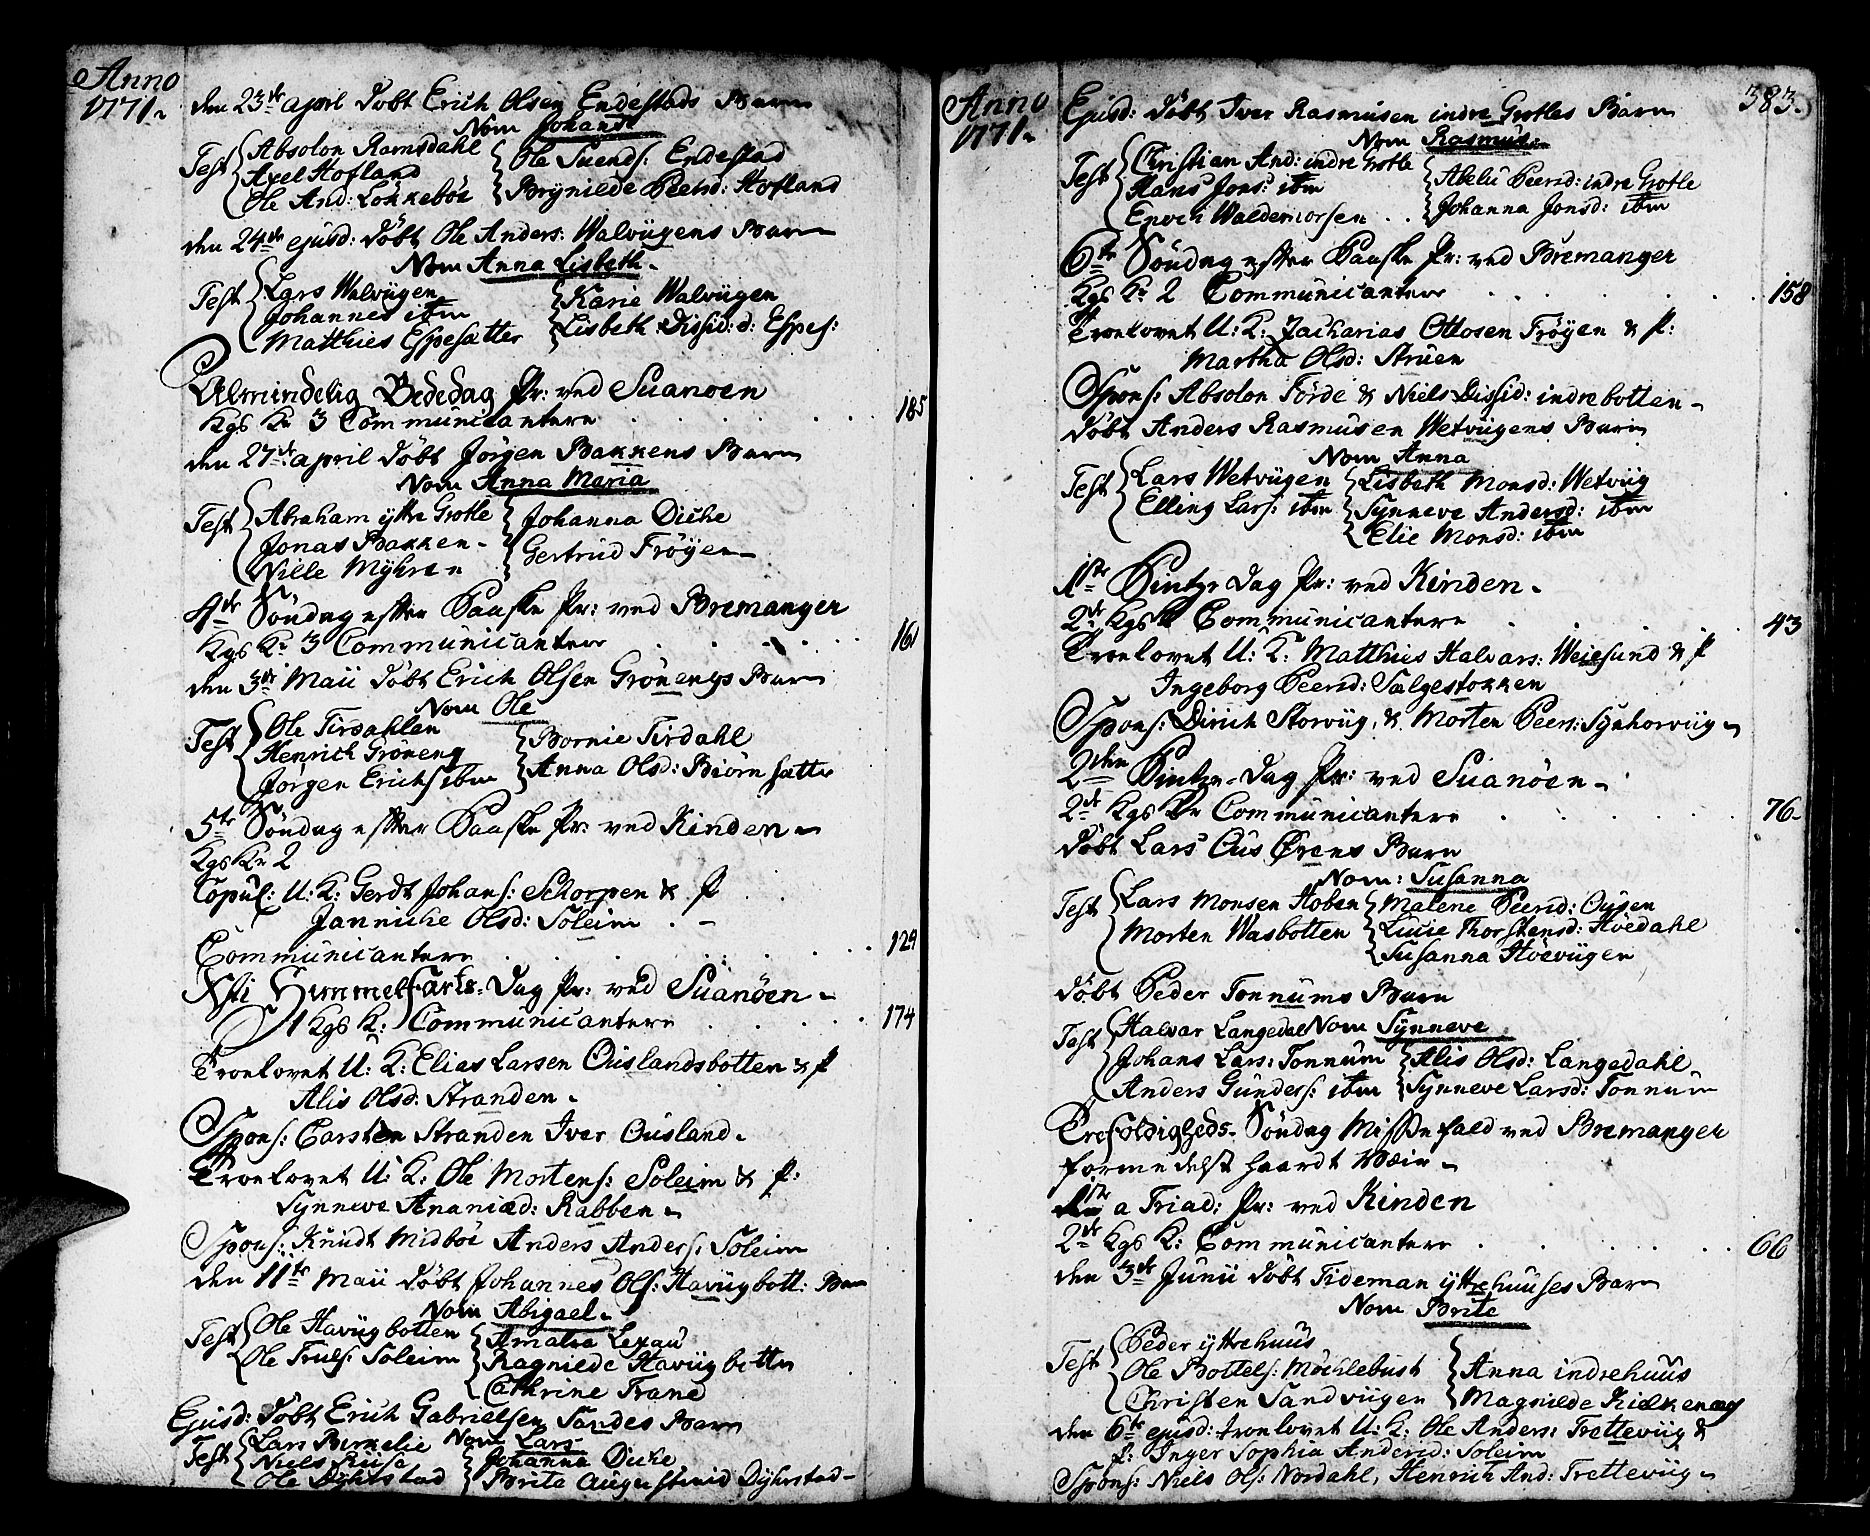 Anno
1771.
den 23de april döbt Erich Olsen Endestads Barn
Nom Johans
Test Absolon Ramsdahl
Axel Hofland
Ole And: Lökkeböe
Ole Suends: Endestad
Brynilde Peersd: Hofland
den 24de ejusd: döbt Ole Anders: Walvügens Barn
Nom Anna Lisbeth.
Test Lars Walvügen
Johannes ibm
Matthies Espesætter
Karie Walvügen
Lisbeth Dissid: d: Espes:
Almindelig Bededag Pr: ved Suanoen
Kgs Kr 3 Communicantere 185
den 27de april döbt Jörgen Bakkens Barn
Nom Anna Maria
Test Abraham yttre Grotle
Jonas Bakken
Nille Myhren
Johanna Dicke
Gertrud Fröyen
4de Söndag efter Paaske Pr: ved Bremanger
Kgs Kr 3 Communicantere 161
den 3de Maii döbt Erich Olsen Grönengs Barn
Nom Ole
Test Ole Tirdahlen
Henrich Gröneng
Jörgen Erichs ibm
Bornie Tirdahl
Anna Olsd: Biörnsætter
5te Söndag efter Paaske Pr: ved Kinden
Kgs Kr 2
Copul: U: K: Gerdt Johans: Schorpen & P
Jannicke Olsd: Soleim
Communicantere 129
Xsti Himmelfarts-Dag Pr: ved Suanöen
1 Kgs K: Communicantere 174
Troelovet U: K: Elias Larsen Ouslandsbotten & P
Alis Olsd: Stranden
Spons: Carsten Stranden Iver Ousland
Troelovet U: K: Ole Mortens: Soleim & P:
Synneve Ananiæd: Rabben
Spons: Knudt Midböe Anders Anders: Soleim
den 11te Maii döbt Johannes Ols: Havügbott: Barn
Nom Abigael
Test Ole Havügbotten
Ole Truels: Soleim
Amalia Lexau
Ragnilde Havügbotten
Cathrine Trane
Ejusd: döbt Erich Gabrielsen Sandes Barn
Nom Lars
Test Lars Birkelie
Niels Huse
Ole Dyhrstad
Johanna Dicke
Brite Augustinid Dyhrstad
Anno
1771.
383.
Ejusd: döbt Iver Rasmusen indre Grotles Barn
Nom Rasmus
Test Christian And: indre Grotle
Hans Jons: ibm
Enoch Waldemorsen
Abelü Peersd: indre Grotle
Johanna Jonsd: ibm
6te Söndag efter Paaske Pr: ved Bremanger
Kgs Kr 2 Communicantere 158
Troelovet U: K: Zacharias Ottosen Fröyen & P:
Martha Olsd: Struen
Spons: Absolon Förde & Niels Dissid: indrebotten
döbt Anders Rasmusen Wetvügens Barn
Nom Anna
Test Lars Wetvügen
Elling Lars: ibm
Lisbeth Monsd: Wetvüg
Synneve Andersd: ibm
Elie Monsd: ibm
1ste Pintze Dag Pr: ved Kinden
2de Kgs K Communicantere 43
Troelovet U: K: Matthies Halvars: Weiesund & P
Ingeborg Peersd: Sælgestokken
Spons: Dirich Storvüg, & Morten Peers: Synhorvüg
2den Pintze-Dag Pr: ved Suanöen
2de Kgs Kr Communicantere 76
döbt Lars Ous Örens Barn
Nom: Susanna
Test Lars Monsen Hoben
Morten Wasbotten
Malene Peersd: Ousen
Lucie Thorstensd: Hövedahl
Susanna Hövevügen
döbt Peder Tonnums Barn
Nom Synneve
Test Halvar Langedal
Johans Lars: Tonnum
Anders Gunders: ibm
Alis Olsd: Langedahl
Synneve Larsd: Tonnum
Trefoldigheds-Söndag Missefald ved Bremanger
formedelst haardt Wæir
1ste a Triad: Pr: ved Kinden
2de Kgs K: Communicantere 66
den 3de Junii döbt Tideman yttrehuuses Barn
Nom Brite
Test Peder yttrehuus
Ole Bottels: Möchlebust
Christen Sandvügen
Anna indrehuus
Magnilde Kielkenæs
den 6te ejusd: troelovet U: K: Ole Anders: Trettevüg &
P: Inger Sophia Andersd: Soleim
Spons: Niels Ols: Nordahl, Henrich And: Trettevüg